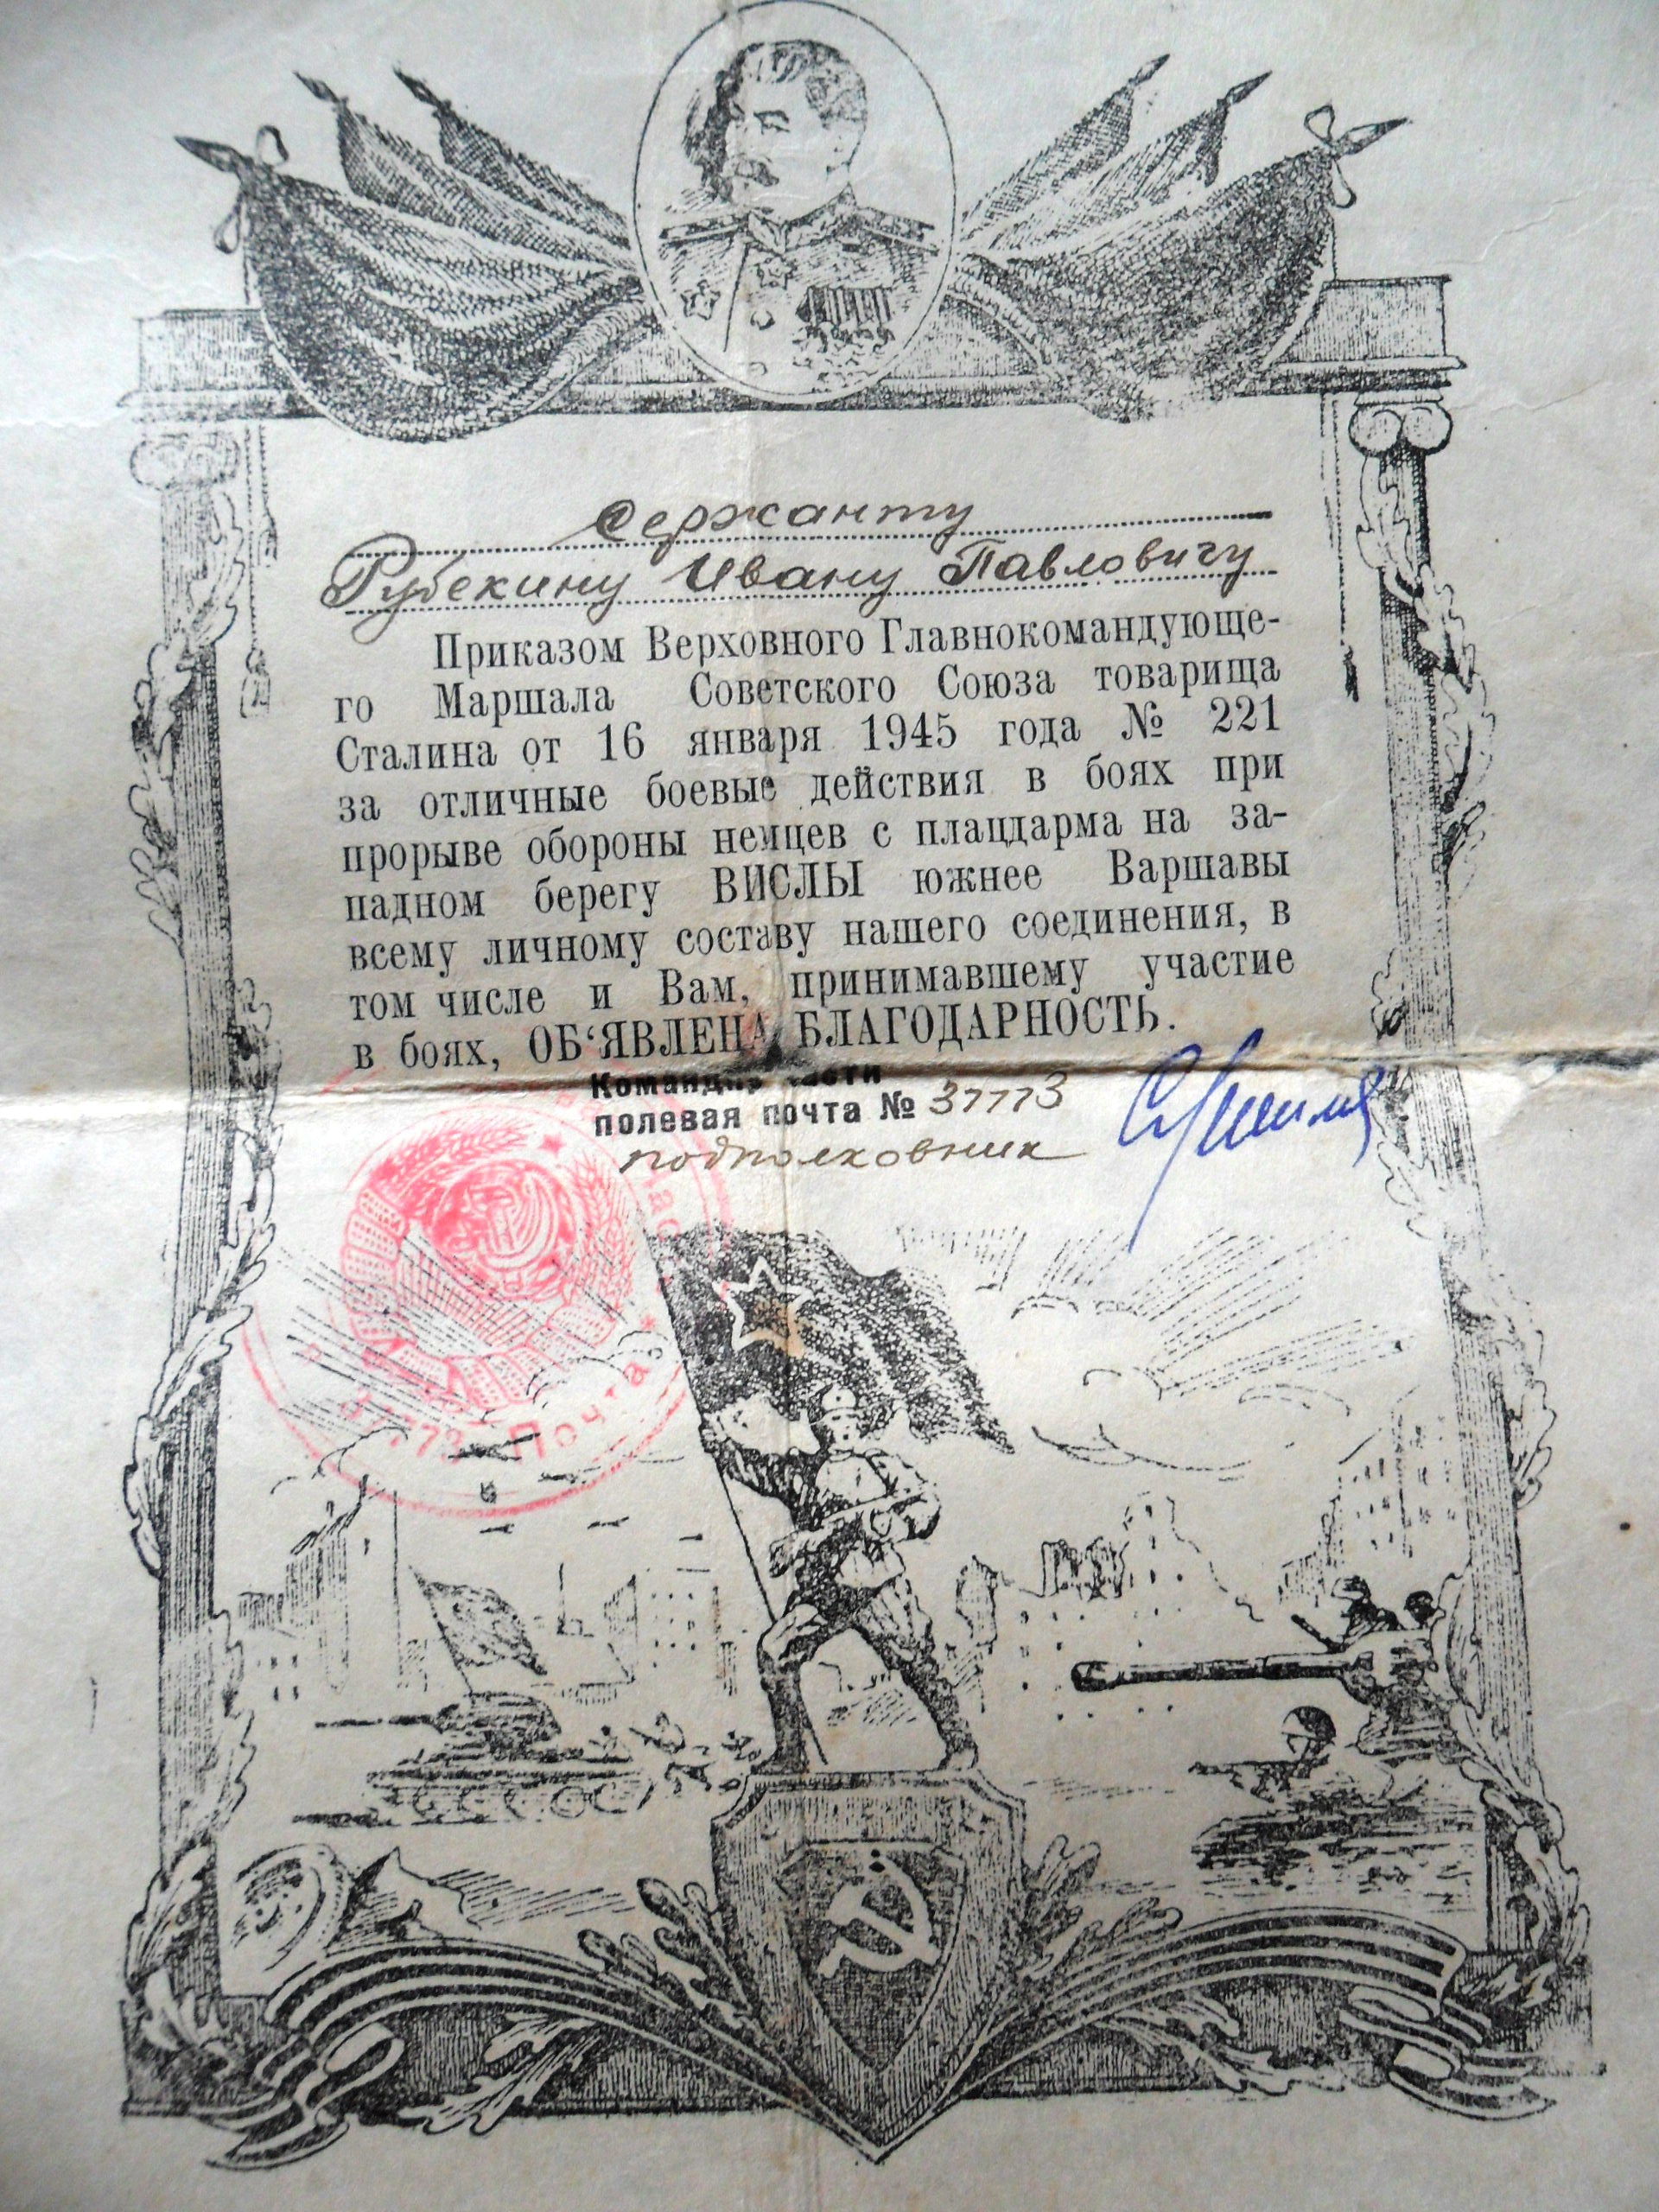 Сержанту
Рубекину Ивану Павловичу
Приказом Верховного Главнокомандующе-
го Маршала Советского Союза товарища
Сталина от 16 января 1945 года № 221
за отличные боевые действия в боях при
прорыве обороны немцев с плацдарма на за-
падном берегу ВИСЛЫ южнее Варшавы
всему личному составу нашего соединения, в
том числе и Вам, принимавшему участие
в боях, ОБ‘ЯВЛЕНА БЛАГОДАРНОСТЬ.
Командир части
полевая почта № 37773
подполковник
37773 Почта